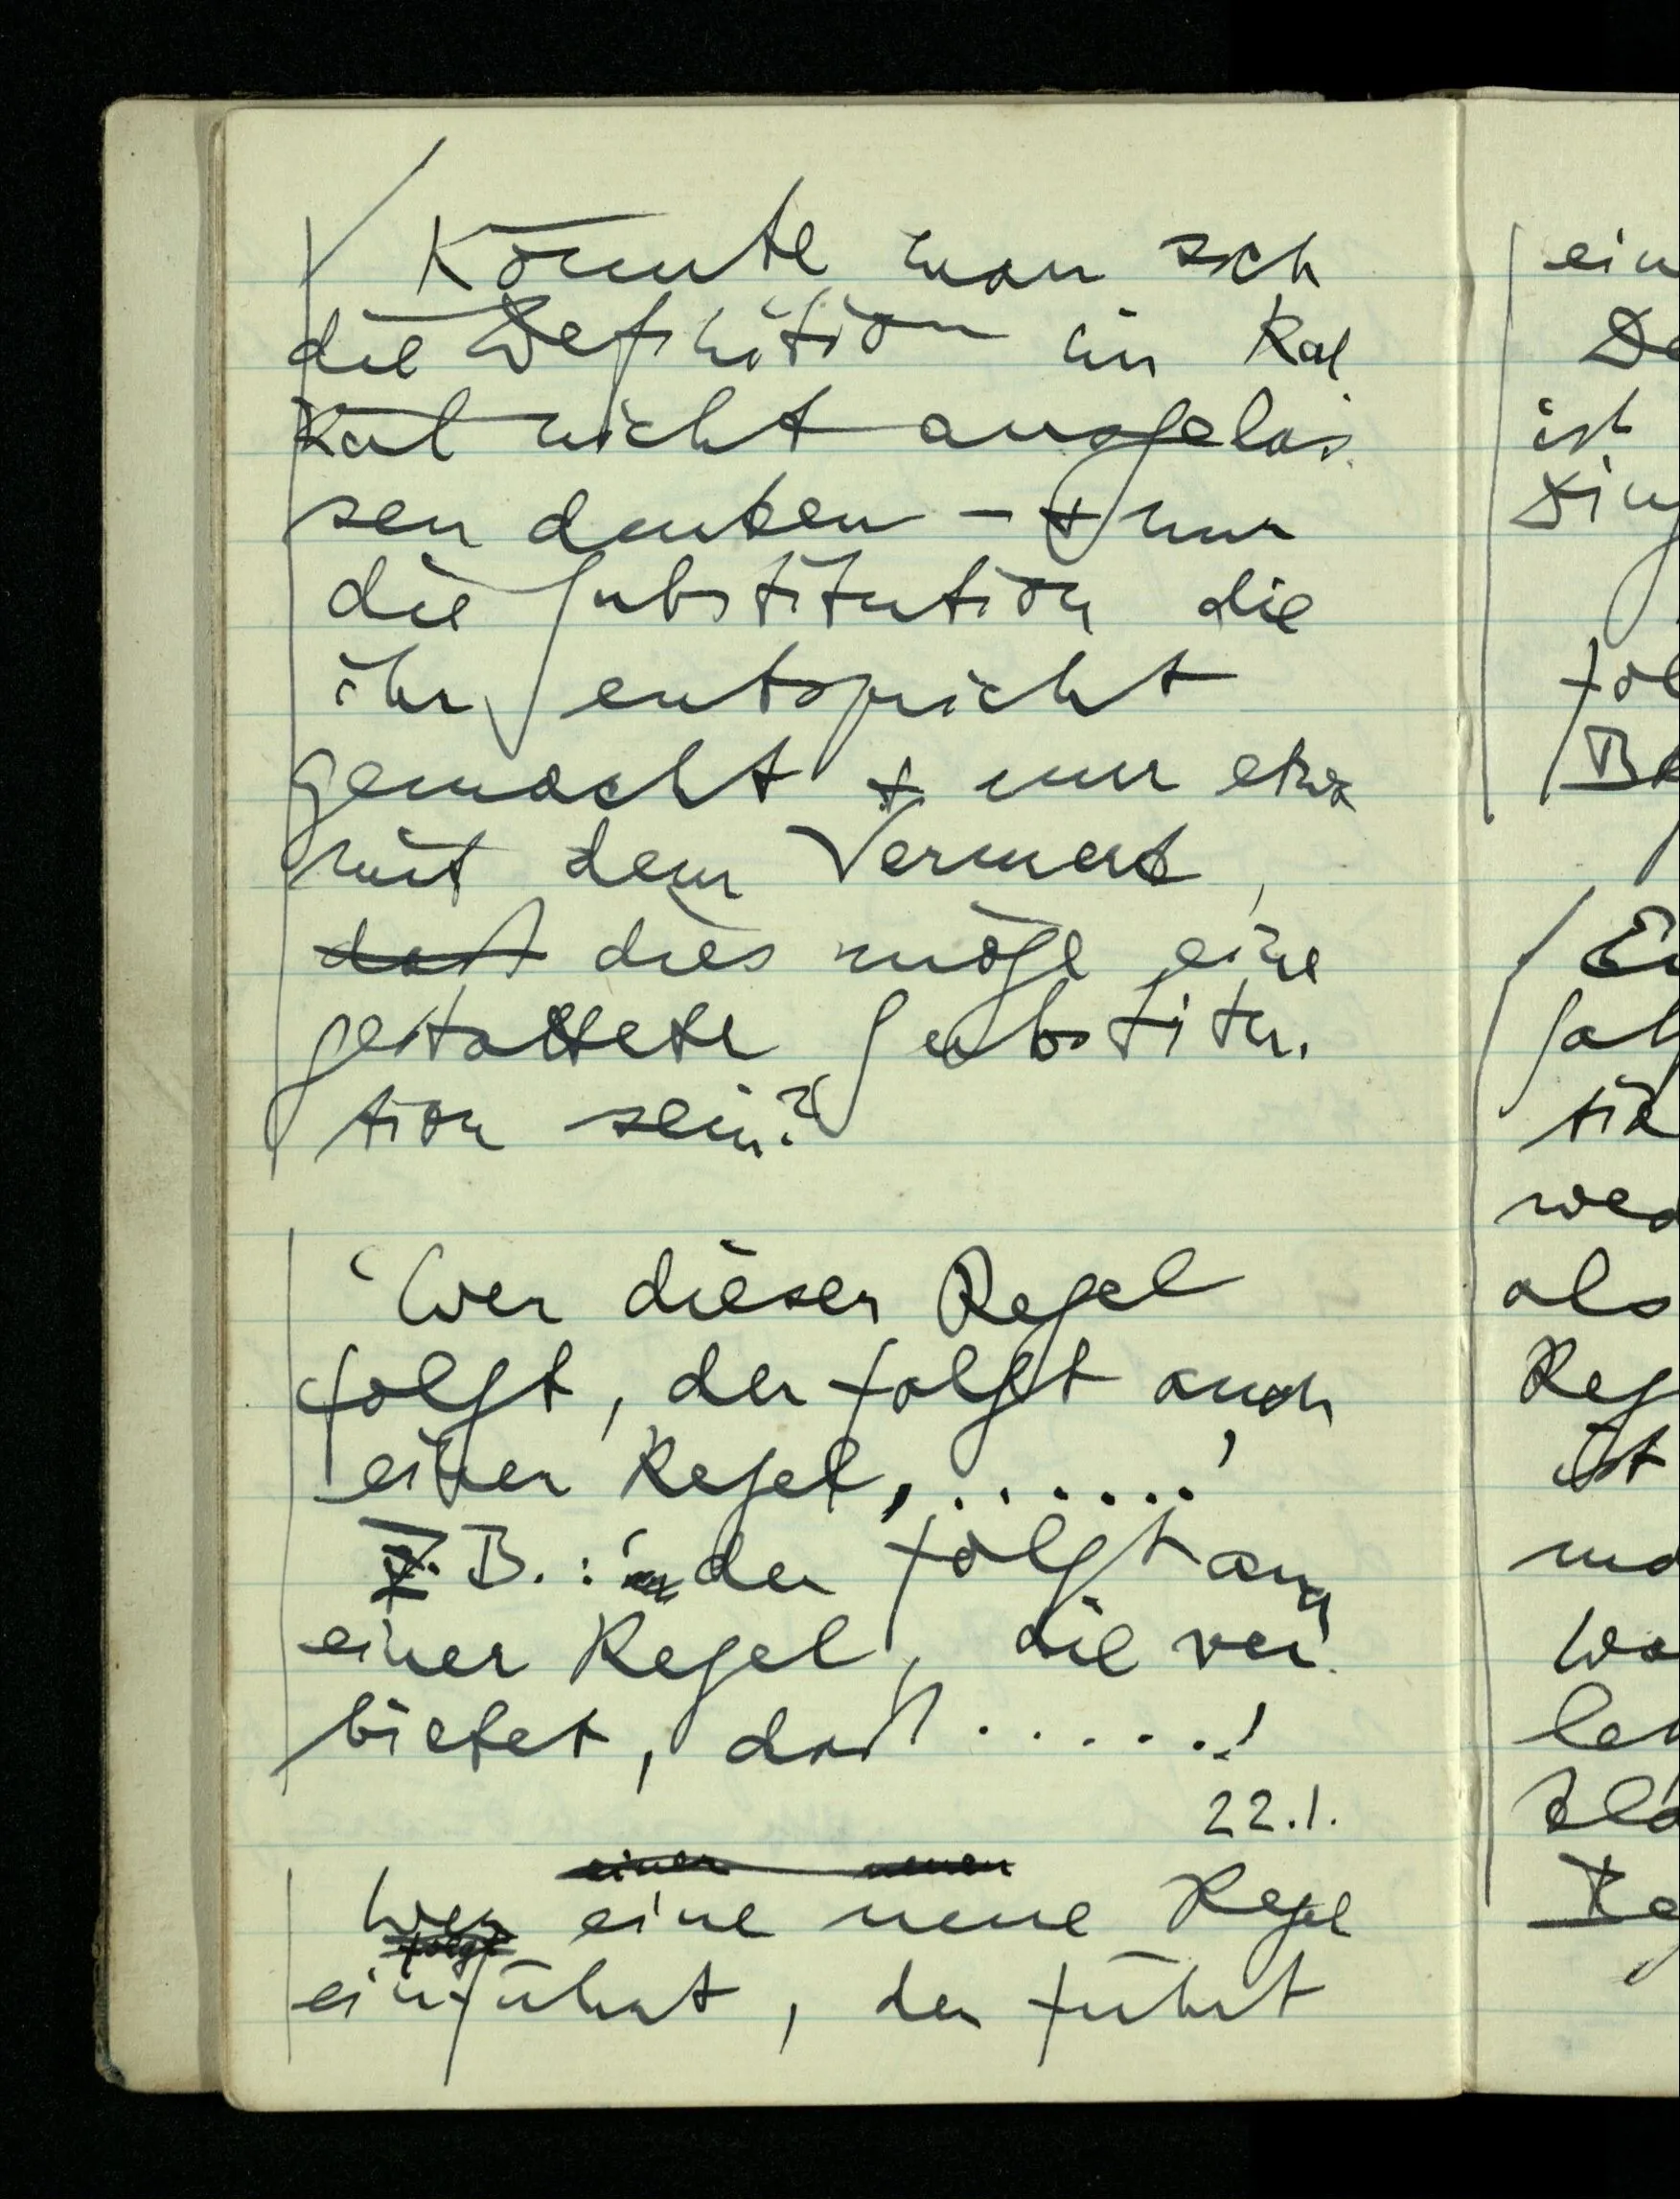 Könnte man sich
die Definition im Kal
kül nicht ausgelas-
sen denken – + nur
die Substitution die
ihr entspricht
gemacht + nur etwa
mit dem Vermerk,
daß dies möge eine
gestattete Substitu-
tion sein?
'Wer dieser Regel
folgt, der folgt auch
einer Regel, .......'
Z.B.: 'der folgt auch
einer Regel, die ver-
bietet, daß ......'
22.1.
einer neuen
Wer eine neue Regel
folgt
einführt, der führt
ein
De
ist
Ding
fol
Be
Ei
wed
als
Reg
ist